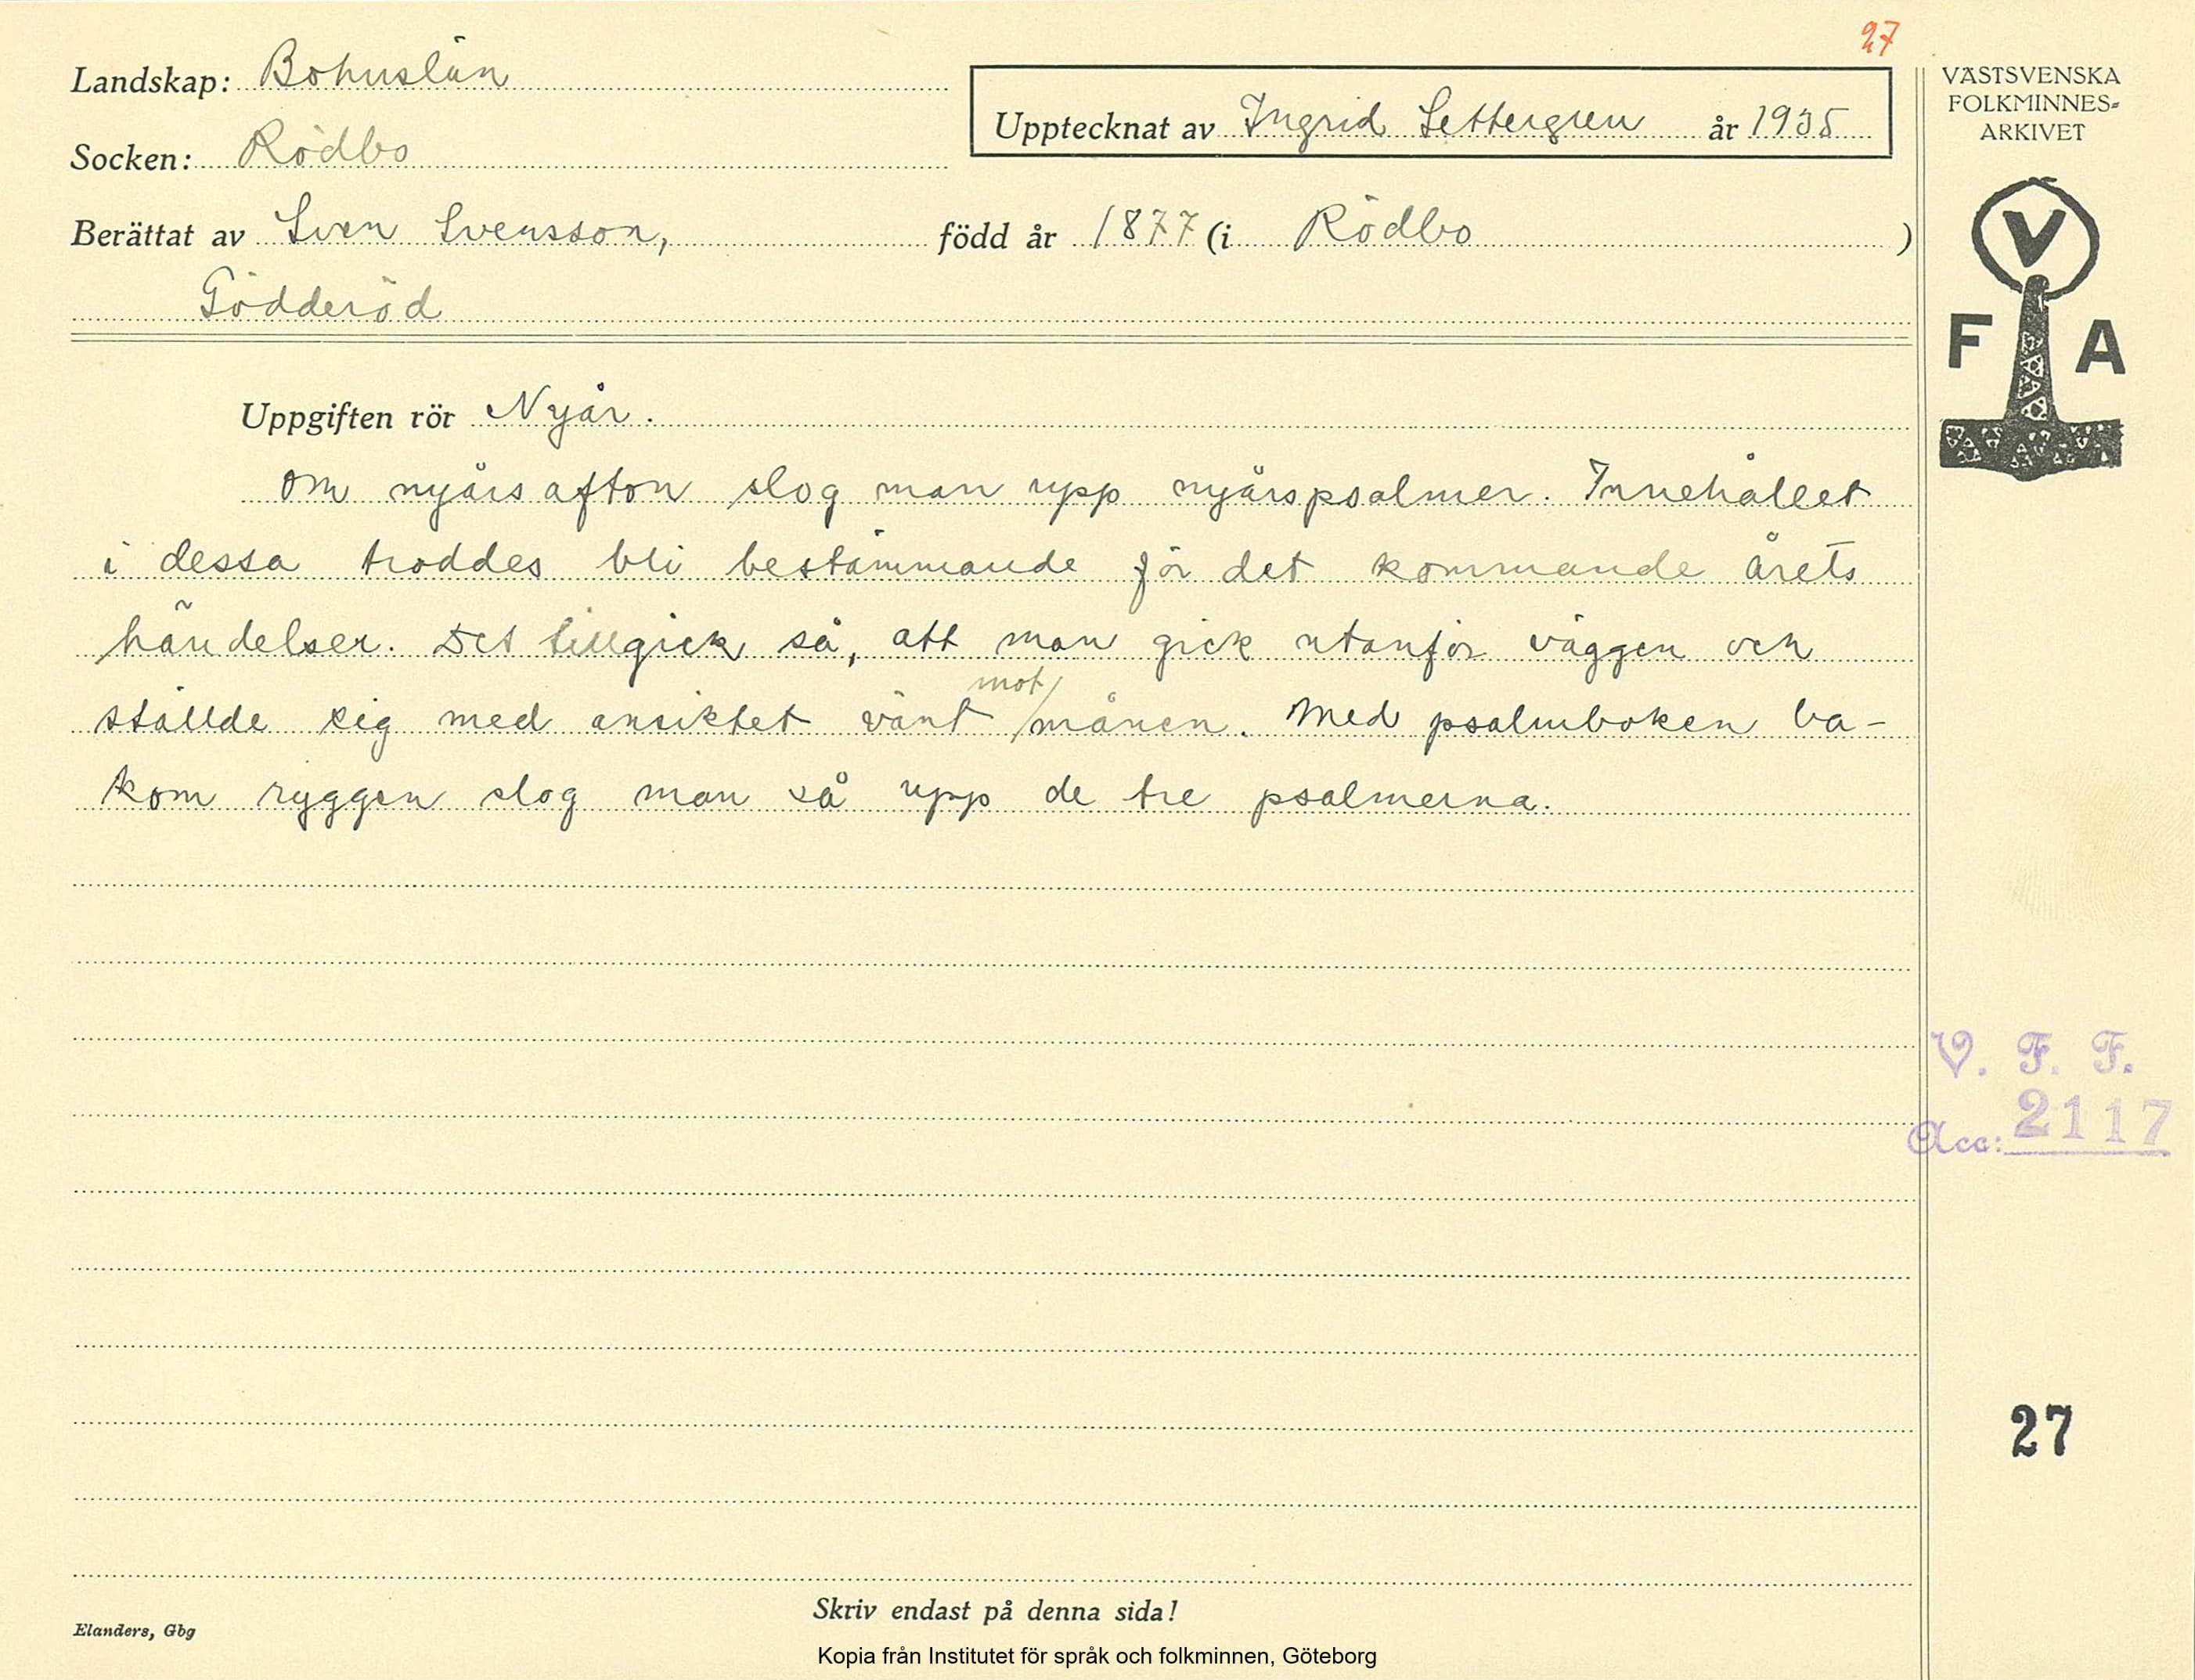 27
Landskap: Bohuslän
Upptecknat av Ingrid Settergren år 1935
VÄSTSVENSKA
FOLKMINNES=
ARKIVET
Socken: Rödbo
Berättat av Sven Svensson, född år 1877 (i Rödbo )
Gödderöd
V
F A
Uppgiften rör Nyår.
Om nyårsafton slog man upp nyårspsalmer. Innehållet
i dessa troddes bli bestämmande för det kommande årets
händelser. Det tillgick så, att man gick utanför väggen och
ställde sig med ansiktet vänt mot månen. Med psalmboken ba-
kom ryggen slog man så upp de tre psalmerna.
V. F. F.
Acc: 2117
27
Skriv endast på denna sida!
Elanders, Gbg
Kopia från Institutet för språk och folkminnen, Göteborg